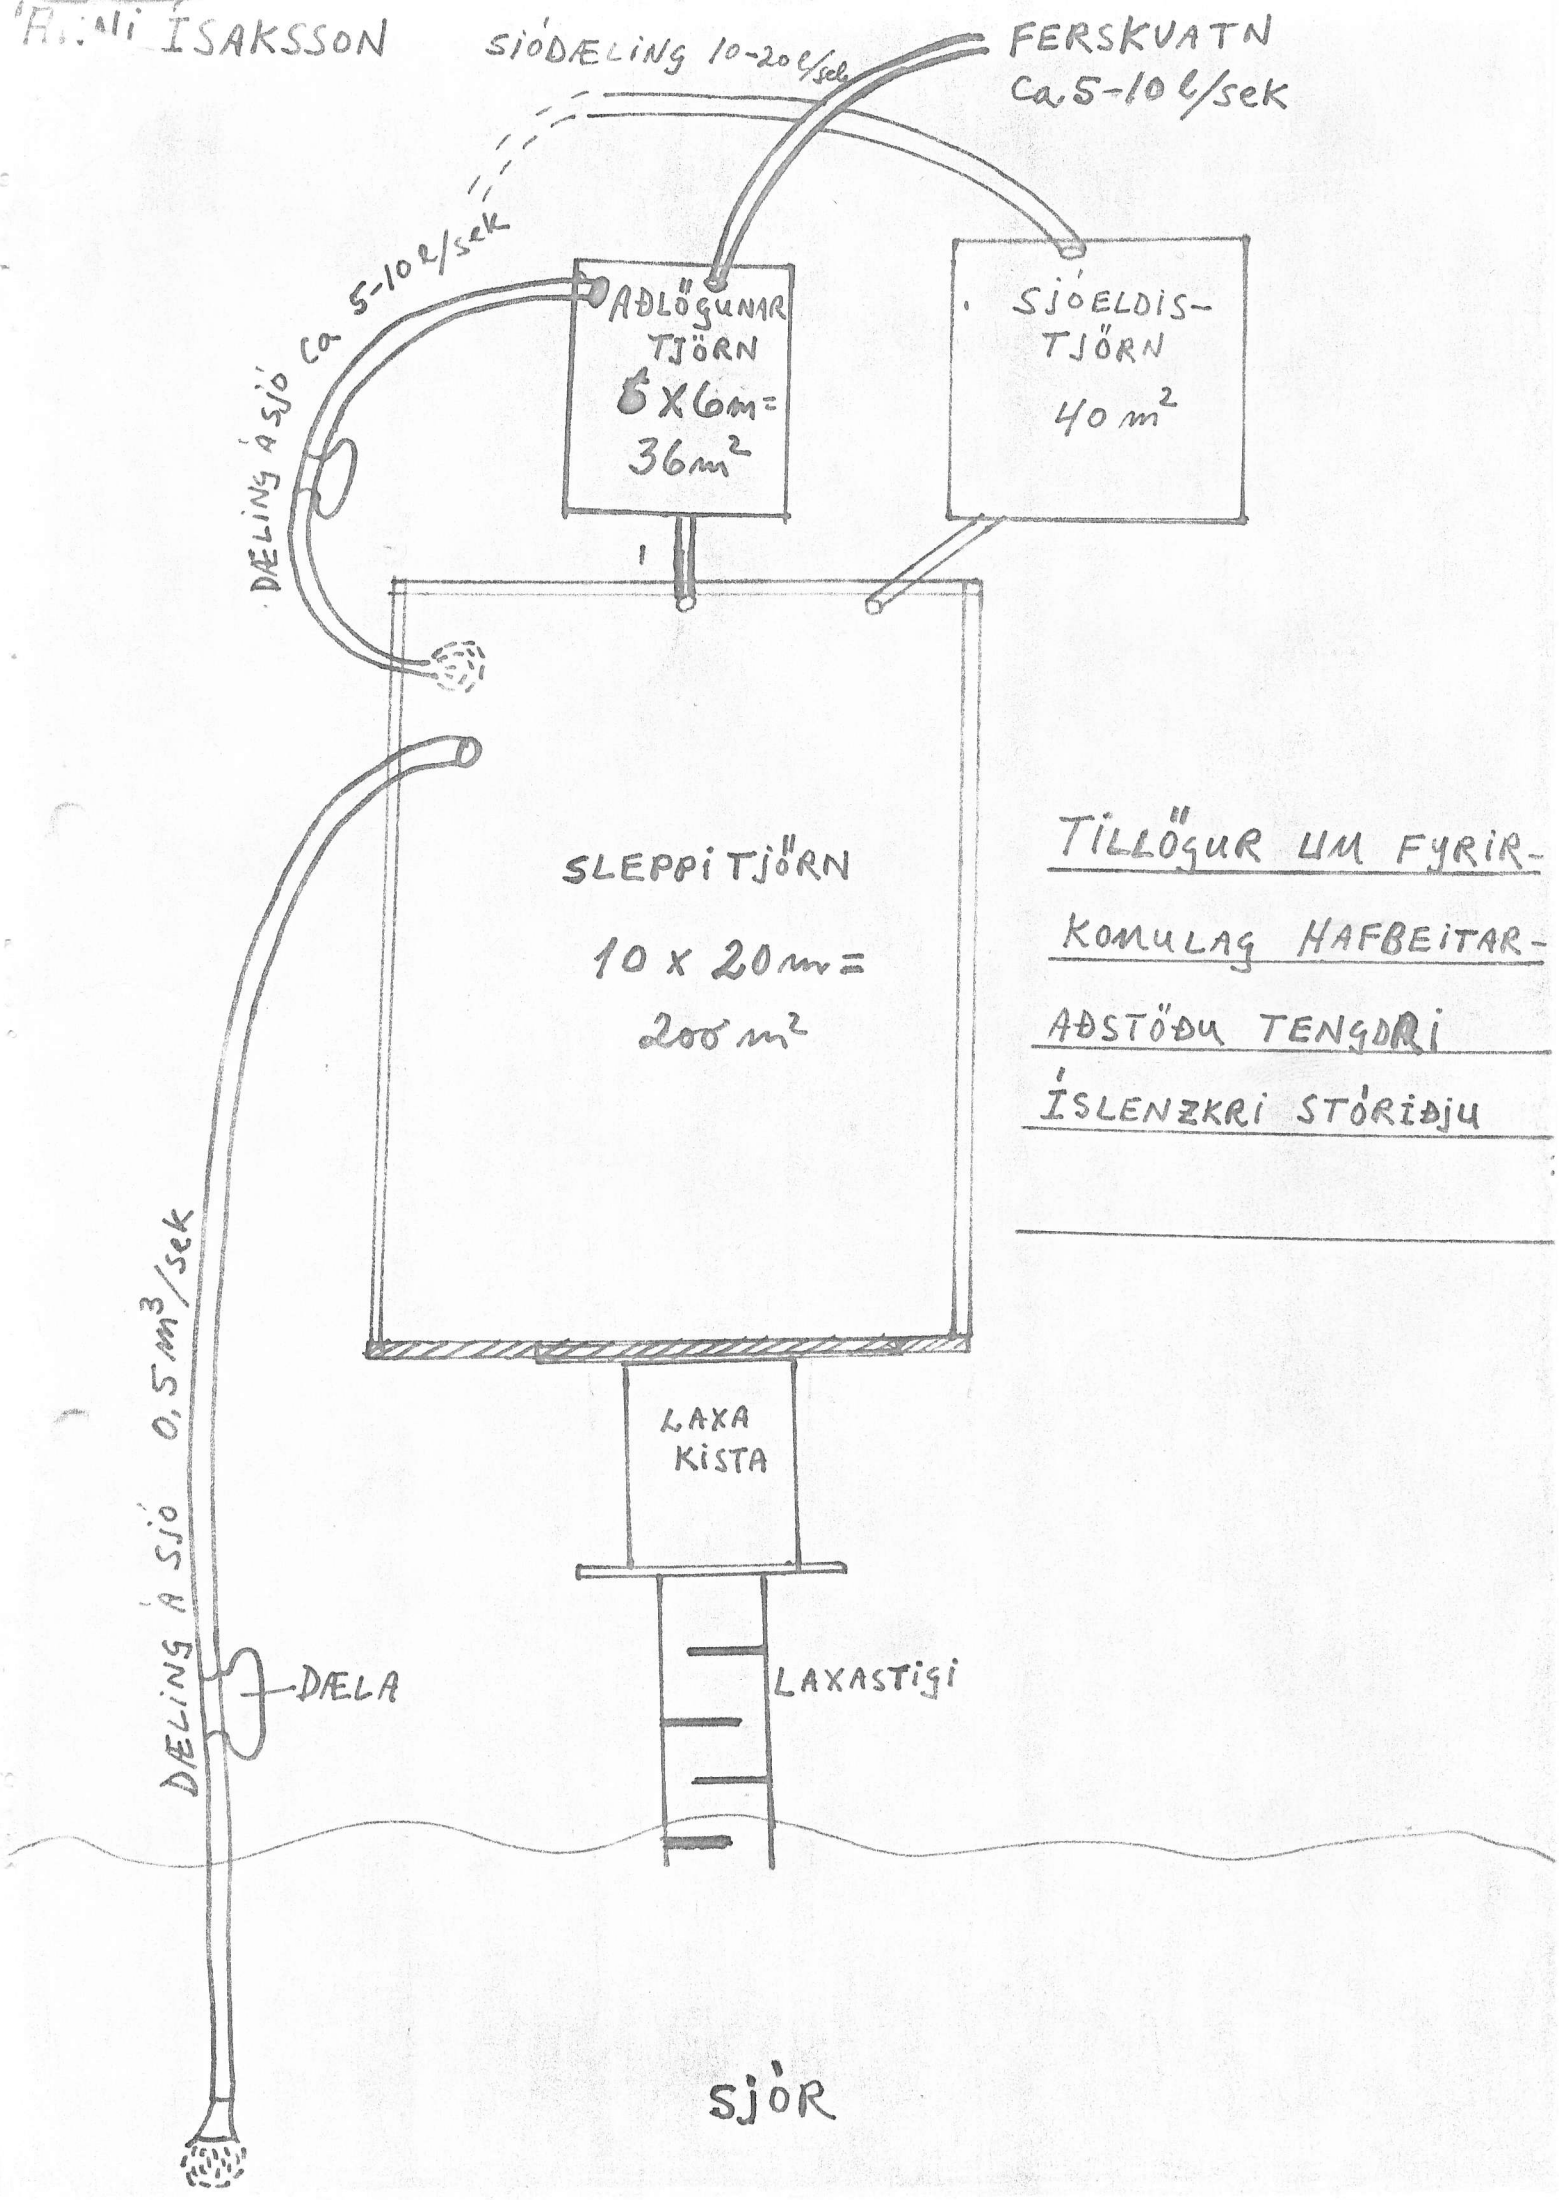 ÍSAKSSON
SJÓDÆLING 10-20 l/sek
FERSKVATN
Ca 5-10 l/sek
DÆLING Á SJÓ Ca 5-10 l/sek
AÐLÖGUNAR
TJÖRN
6 X 6m=
36m²
SJÓELDIS-
TJÖRN
40 m²
SLEPPITJÖRN
10 x 20m=
200 m²
TILLÖGUR UM FYRIR-
KOMULAG HAFBEITAR-
AÐSTÖÐU TENGDRI
ÍSLENZKRI STÓRIÐJU
DÆLING Á SJÓ 0,5 m³/sek
LAXA
KISTA
DÆLA
LAXASTIGI
SJÓR